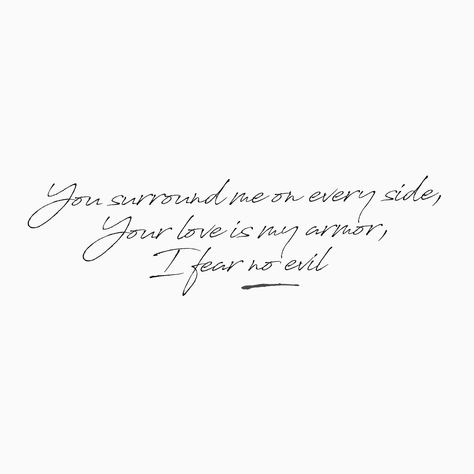 You surround me on every side,
Your love is my armor,
I fear no evil